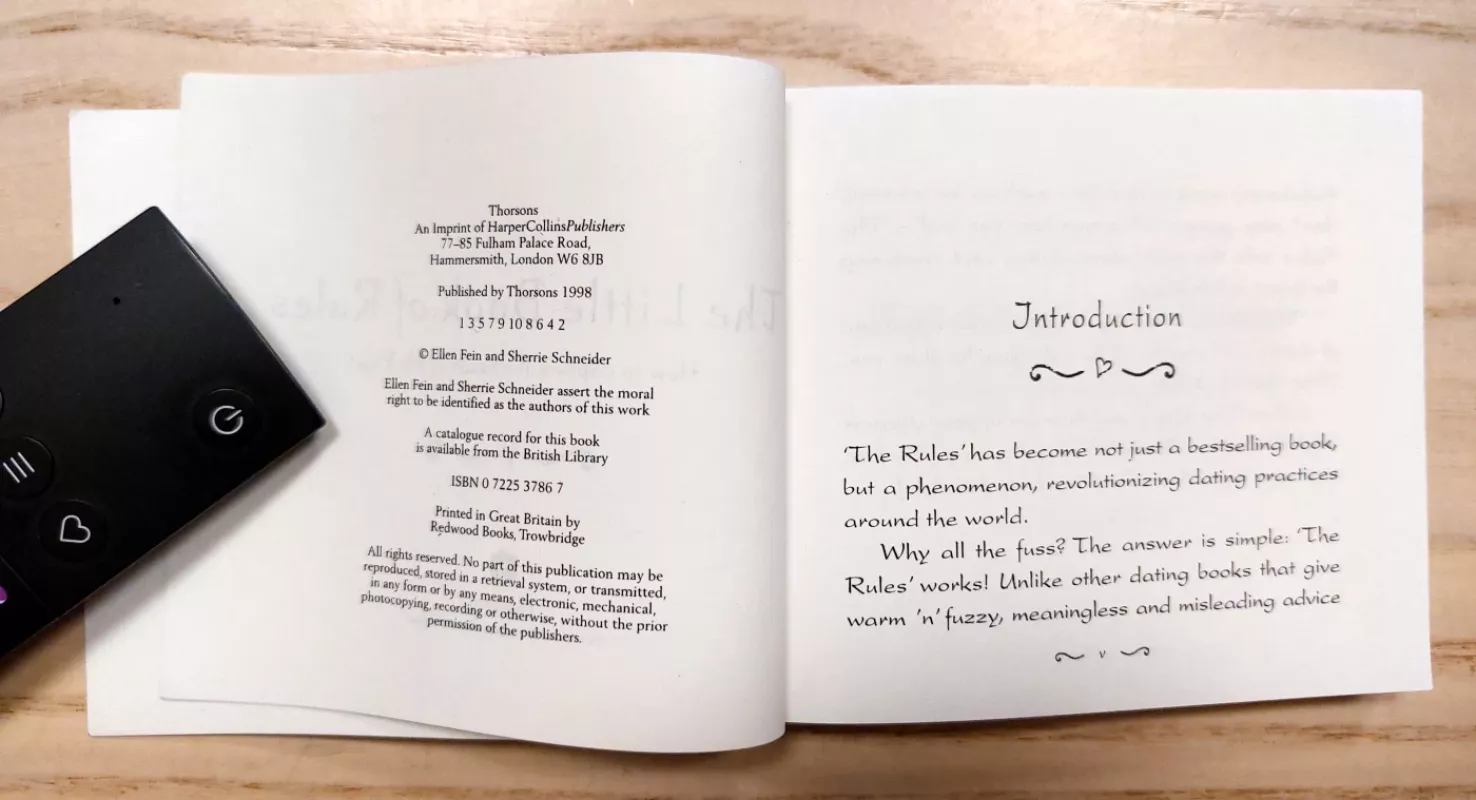 Thorsons
An Imprint of HarperCollinsPublishers
77–85 Fulham Palace Road,
Hammersmith, London W6 8JB
Published by Thorsons 1998
1 3 5 7 9 10 8 6 4 2
© Ellen Fein and Sherrie Schneider
Ellen Fein and Sherrie Schneider assert the moral
right to be identified as the authors of this work
A catalogue record for this book
is available from the British Library
ISBN 0 7225 3786 7
Printed in Great Britain by
Redwood Books, Trowbridge
All rights reserved. No part of this publication may be
reproduced, stored in a retrieval system, or transmitted,
in any form or by any means, electronic, mechanical,
photocopying, recording or otherwise, without the prior
permission of the publishers.
Introduction
‘The Rules’ has become not just a bestselling book,
but a phenomenon, revolutionizing dating practices
around the world.
Why all the fuss? The answer is simple: ‘The
Rules’ works! Unlike other dating books that give
warm ’n’ fuzzy, meaningless and misleading advice
v